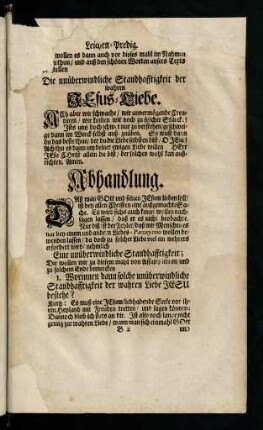 Leichen-Predig.
wollen es dann auch vor dieses mahl im Nahmen
uthun/ und auß den schönen Worten unsers Texts
stellen
Die unüberwindliche Standhafftigkeit der
wahren
JEsus-Liebe.
Ach aber wir schwache/ wir unvermögende Crea-
turen/ wie keiten wir doch zu solcher Stärck!
Ists uns doch nicht nur zu verstehen geschwei-
ge dann im Werck selbst
das beste thun/ der du die Liebe selbsten bist/ O JEsu!
Ach thu es dann um deiner ewigen Liebe willen. HErr
JEsu Christ allein du bist/ der solches wohl kan auß-
richten. Amen.
Abhandlung.
Daß man GOtt und seinen JEsum lieben soll/
ist bey allen Christen eine außgemachte Sa-
che. Es wird sichs auch keiner wollen nach-
sagen lassen/ daß er es nicht beobachte.
Nur diß ist der Fehler/ daß wir Menschen es
nur bey einem und andern Liebes-Paroxysmo wollen be-
wenden lassen/ da doch zu solcher Liebe viel ein mehrers
erfordert wird/ nehmlich
Eine unüberwindliche Standhafftigkeit;
Der wollen wir zu diesem mahl von
zu solchem Ende bemercken
1. Worinnen dann solche unüberwindliche
Standhafftigkeit der wahren Liebe JESU
bestehe?
Kurtz: Es muß eine JEsum liebhabende Seele vor ih-
ren Heyland mit Freuden tretten/ und sagen können:
Dannoch bleib ich stets an dir. Ist also noch lange nicht
genug zur wahren Liebe/ wann man sich einmahl GOtt
B 2